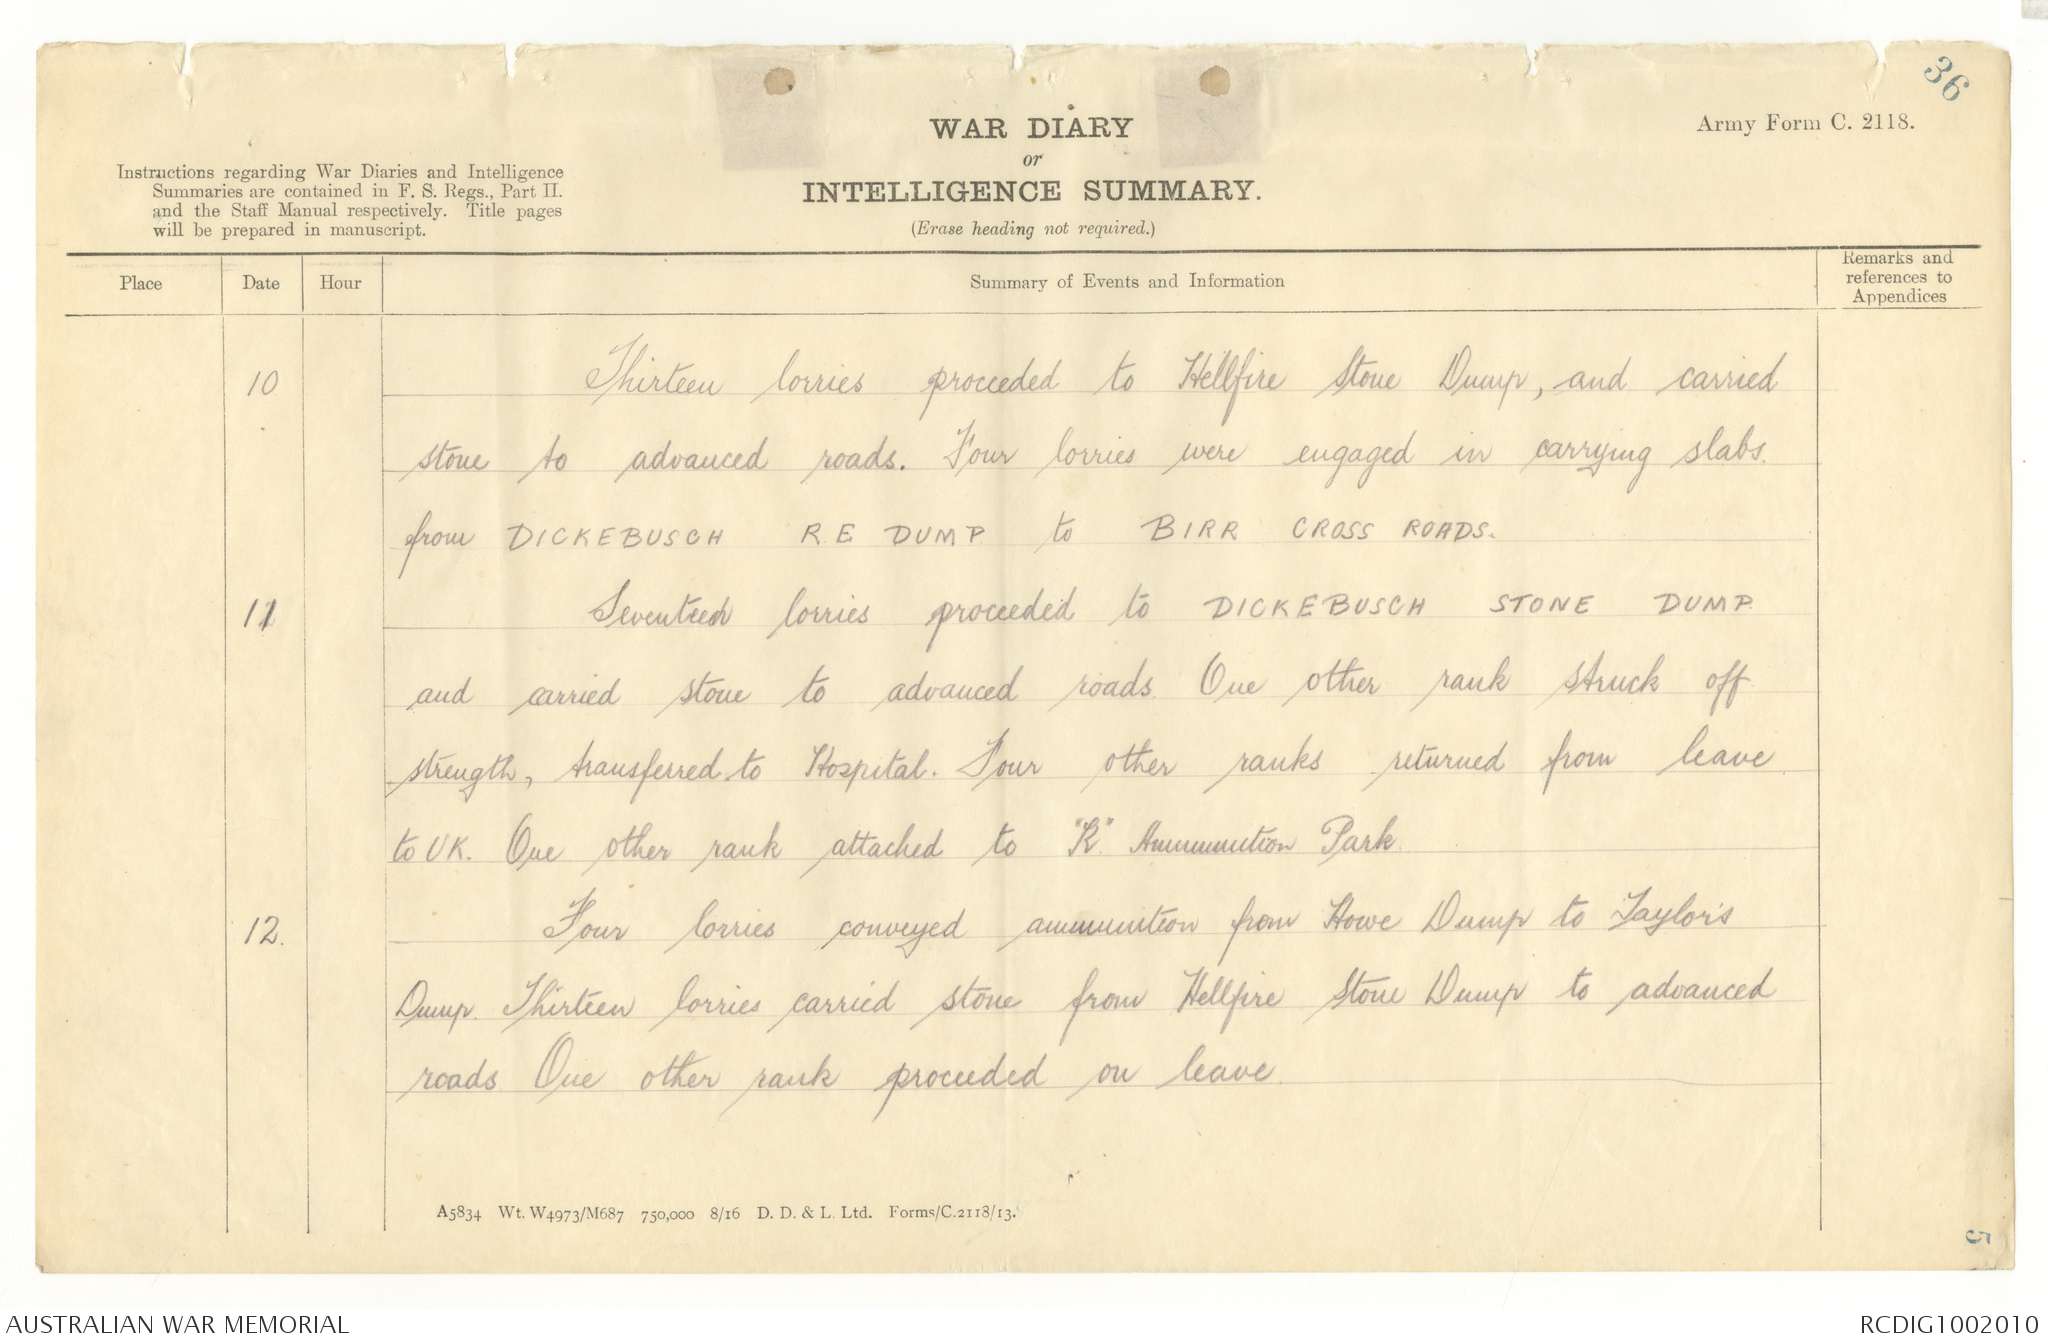 36
Army Form C. 2118.
WAR DIARY
or
INTELLIGENCE SUMMARY.
(Erase heading not required.)
Instructions regarding War Diaries and Intelligence
Summaries are contained in F. S. Regs., Part II.
and the Staff Manual respectively. Title pages
will be prepared in manuscript.
Place Date Hour Summary of Events and Information Remarks and
references to
Appendices
10 Thirteen lorries proceeded to Hellfire Stone Dump, and carried
stone to advanced roads. Four lorries were engaged in carrying slabs.
from DICKEBUSCH R.E DUMP to BIRR CROSS ROADS.
11 Seventeen lorries proceeded to DICKEBUSCH STONE DUMP
and carried stone to advanced roads. One other rank struck off
strength, transferred to Hospital. Four other ranks returned from leave
to UK. One other rank attached to "K" Ammunition Park.
12. Four lorries conveyed ammunition from Howe Dump to Taylor's
Dump. Thirteen lorries carried stone from Hellfire Stone Dump to advanced
roads. One other rank proceeded on leave.
A5834 Wt. W4973/M687 750,000 8/16 D. D. & L. Ltd. Forms/C.2118/13.
5
AUSTRALIAN WAR MEMORIAL RCDIG1002010